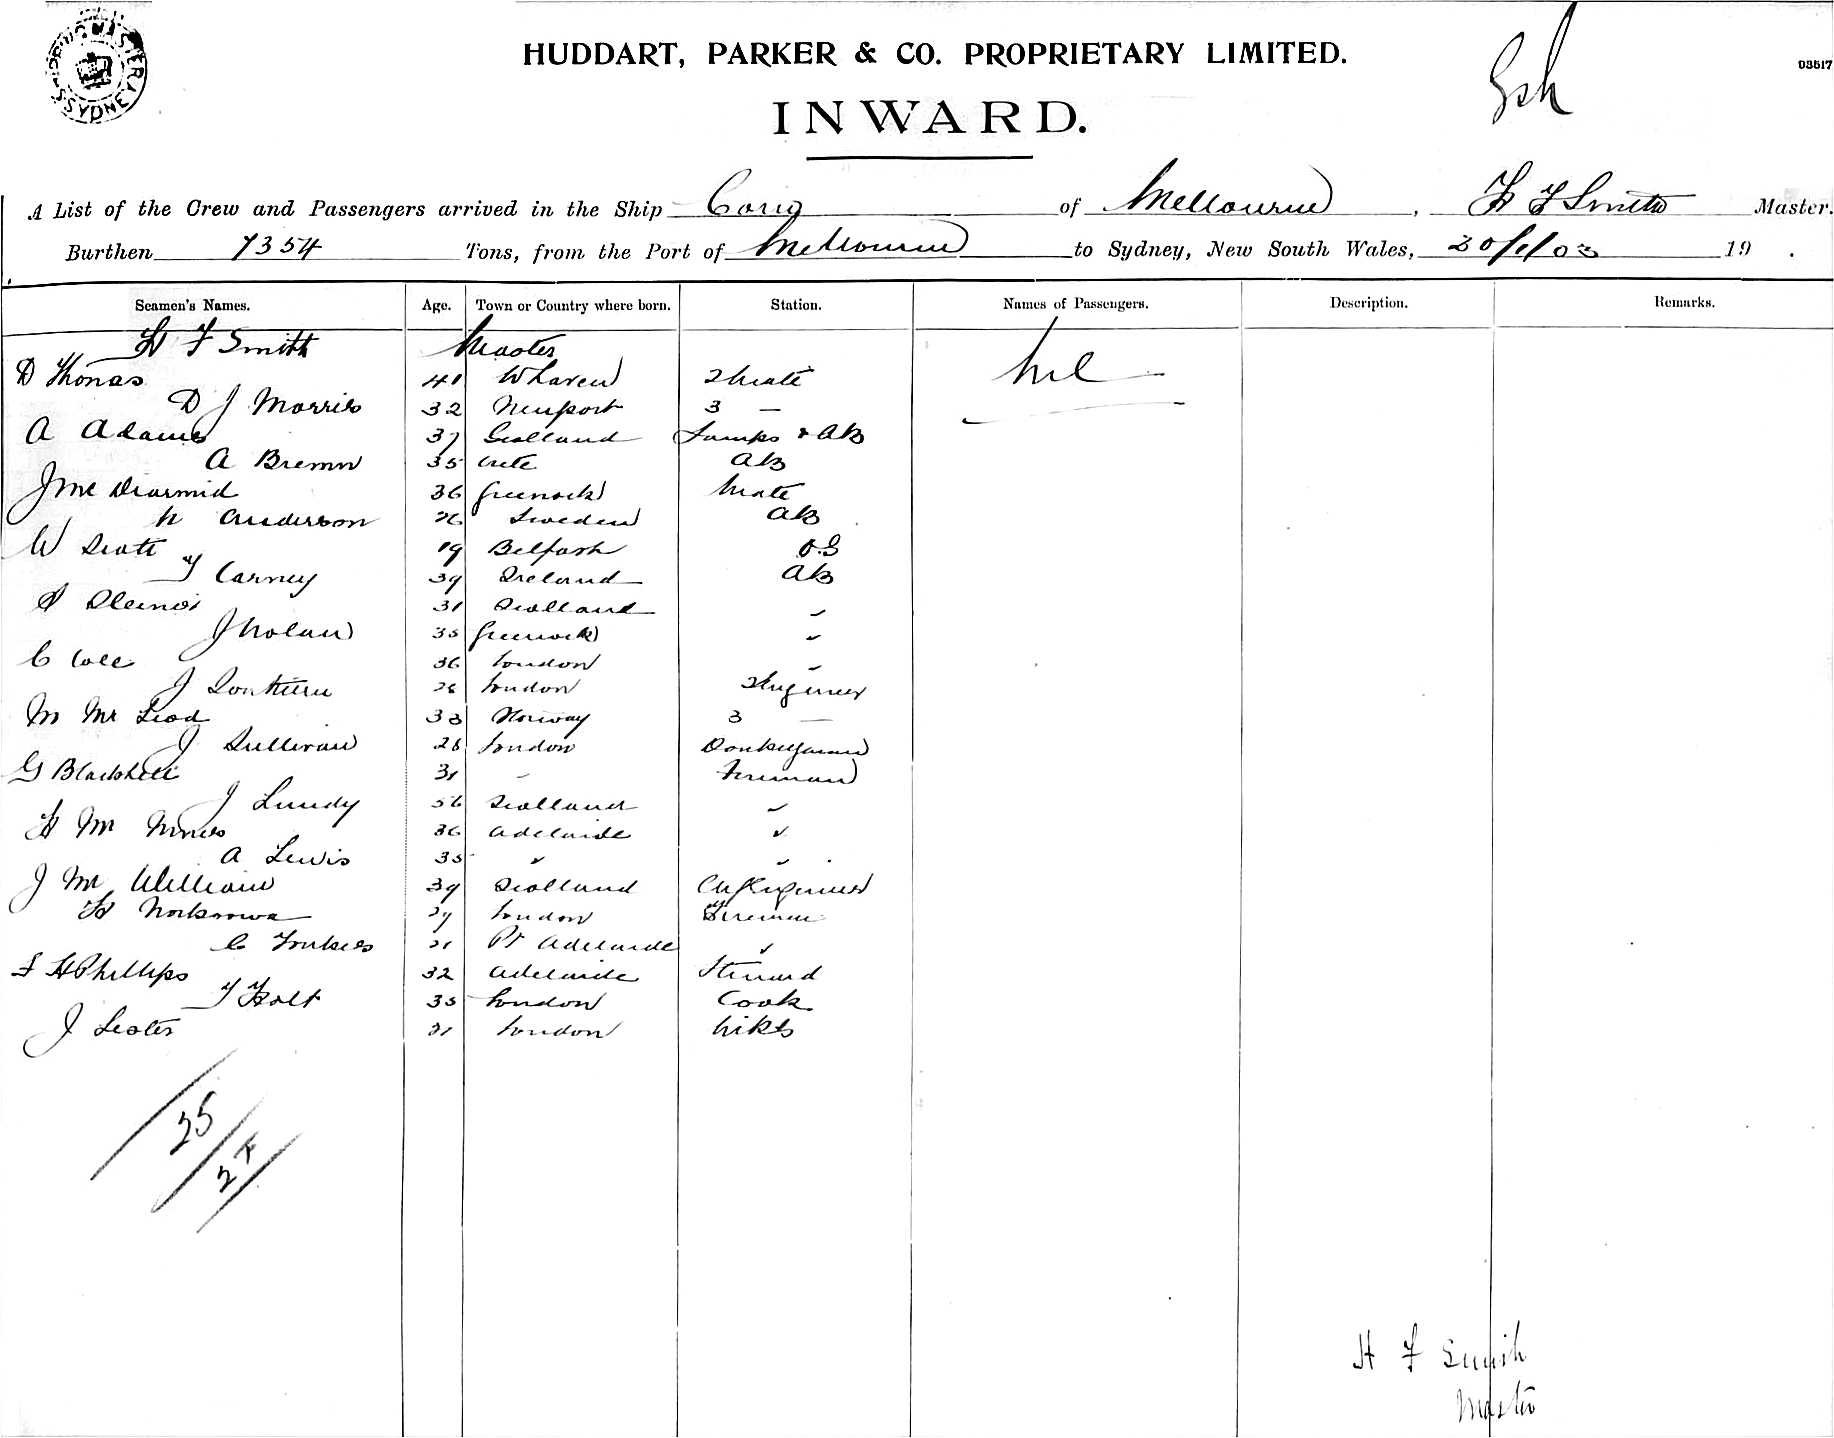 HUDDART, PARKER & CO. PROPRIETARY LIMITED.
03517
INWARD.
A List of the Crew and Passengers arrived in the Ship of Melbourne, H F Smith Master.
Burthen 1354 Tons, from the Port of Melbourne to Sydney, New South Wales, 30/1/03 19 .
Seamen's Names. Age. Town or Country where born. Station. Names of Passengers. Description. Remarks.
H F Smith Master
D Thomas 41 Whaven 2 Mate Nil
D J Morris 32 Newport 3 —
A Adams 37 Scotland Lamps & AB
A Bremn 35 AB
J Mc Diarmid 36 Greenock Mate
N Anderson 26 Sweden AB
W Scott 19 Belfast O.S
T Carney 39 Ireland AB
31 Scotland "
J Nolan 35 Greenock "
C Cole 36 London "
J 28 London 2 Engineer
M Mc Leod 33 Norway 3 —
J Sullivan 28 London Donkeyman
G 31 " Fireman
J Lundy 56 Scotland "
H Mc 36 Adelaide "
A Lewis 35 " "
J Mc William 39 Scotland Ch Engineer
H London Fireman
C 21 Pt Adelaide "
F H Phillips 32 Adelaide Steward
T Holt 35 London Cook
J Lester 21 London
25
H F Smith
Master